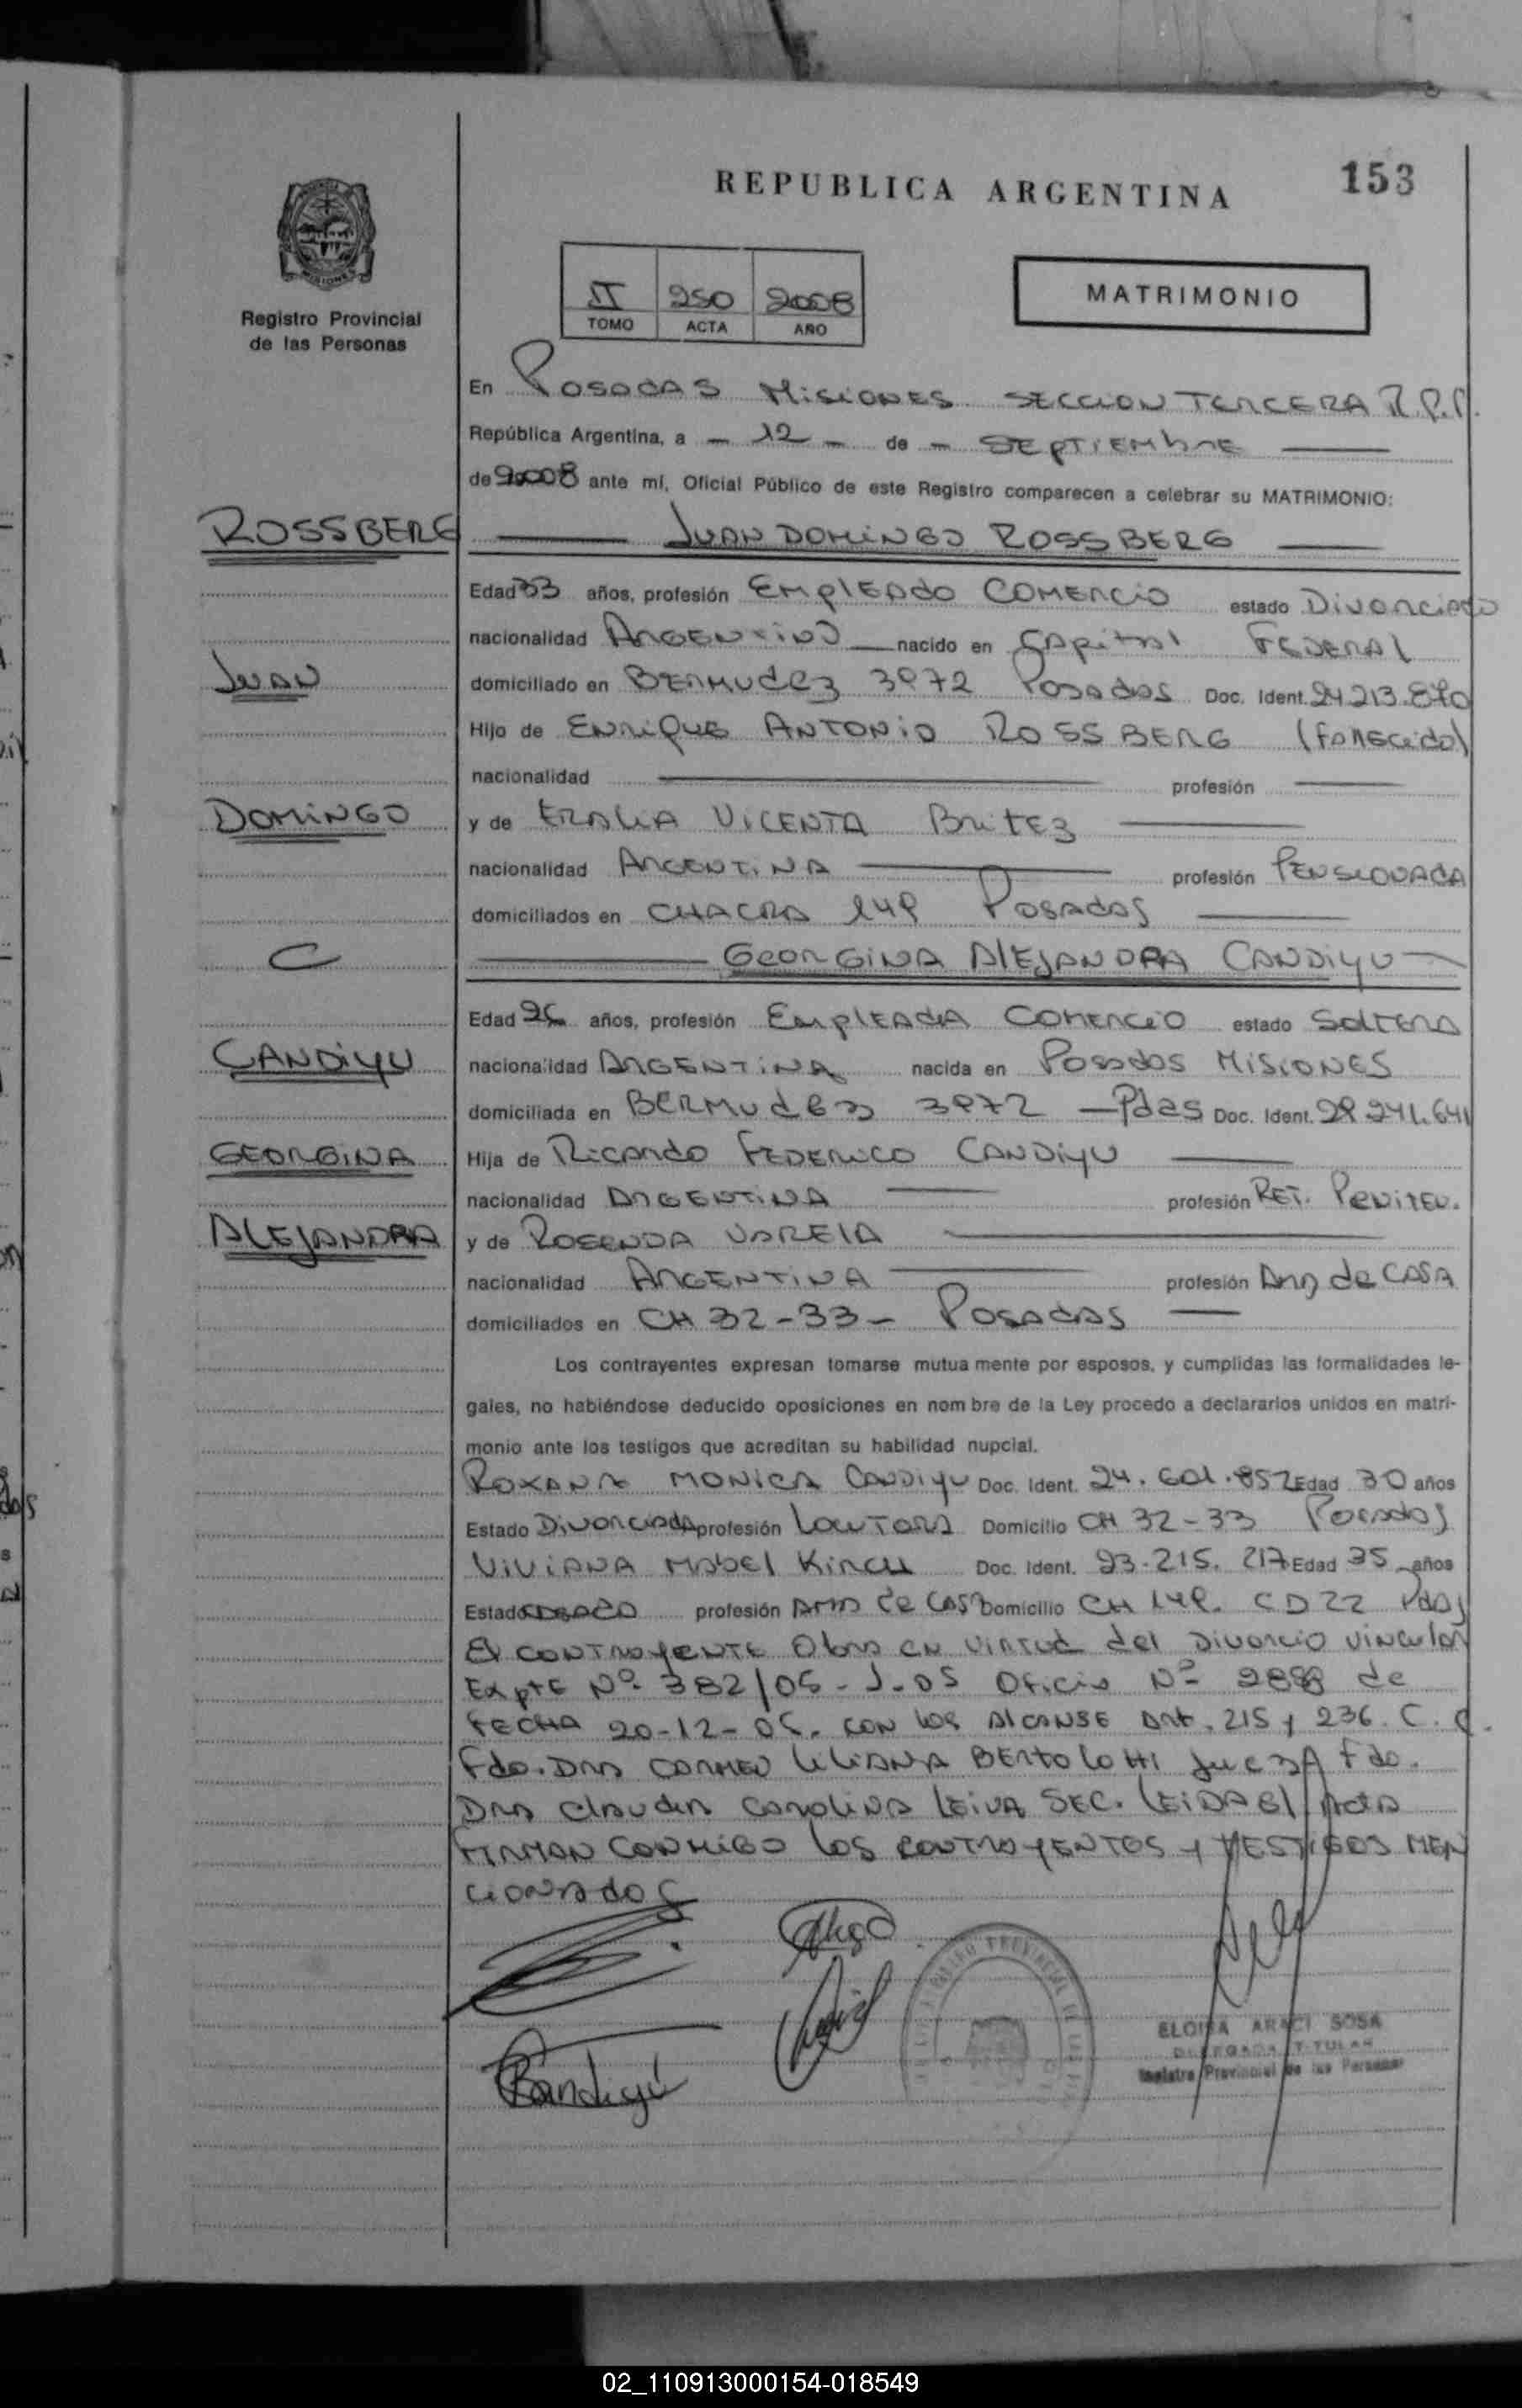 REPUBLICA ARGENTINA
153
MISIONES
Registro Provincial
de las Personas
II 250 2008
TOMO ACTA AÑO
MATRIMONIO
En POSADAS MISIONES SECCION TERCERA R.P.P.
República Argentina, a - 12 - de - SEPTIEMbRE
de 2008 ante mí, Oficial Público de este Registro comparecen a celebrar su MATRIMONIO:
ROSSBERG
JUAN DOMINGO ROSSBERG
Edad 33 años, profesión EMplEADO COMERCIO estado DIVORCIADO
nacionalidad ARGENTINO nacido en CAPITAl FEDERAl
JUAN
domiciliado en BERMUdEz 3972 POSADAS Doc. Ident. 24.213.870
Hijo de ENRIQUE ANTONIO ROSSBERG (FAllECIdO)
nacionalidad profesión
DOMINGO
y de VICENTA BRITEz
nacionalidad ARGENTINA profesión PENSIONADA
domiciliados en CHACRA 149 POSADAS
C
GEORGINA AlEJANDRA CANDIYU
Edad 26 años, profesión EMplEADA COMERCIO estado SOlTERA
CANDIYU
nacionalidad ARGENTINA nacida en POSADAS MISIONES
domiciliada en BERMUdEz 3972 - Pdas Doc. Ident. 29.241.641
GEORGINA
Hija de RICARDO FEDERICO CANDIYU
nacionalidad ARGENTINA profesión RET. PENITEN.
ALEJANDRA
y de ROSENDA VARElA
nacionalidad ARGENTINA profesión AMA de CASA
domiciliados en CH 32-33- POSADAS
Los contrayentes expresan tomarse mutua mente por esposos, y cumplidas las formalidades le-
gales, no habiéndose deducido oposiciones en nom bre de la Ley procedo a declararlos unidos en matri-
monio ante los testigos que acreditan su habilidad nupcial.
ROXANA MONICA CANDIYU Doc. Ident. 24.601.852 Edad 30 años
Estado DIVORCIADA profesión LOCUTORA Domicilio CH 32-33 POSADAS
VIVIANA MAbEl Doc. Ident. 23.215.217 Edad 35 años
Estado CASADA profesión AMA de CASA Domicilio CH 149. CD 22 Pdas
El CONTRAYENTE ObRA EN VIRTUd del DIVORCIO VINCulAR
ExptE Nº 382/05- J-05 OFICIO Nº de
FECHA 20-12-05. CON los AlCANSE ART. 215 y 236. C.C.
Fdo. DRA CARMEN lIlIANA BERTOlOTTI JUEzA Fdo.
DRA ClAUdIA CAROlINA lEIVA SEC. lEIDA El ACTA
FIRMAN CONMIGO los CONTRAYENTES y TESTIGOS MEN
CIONAdOS
Candiyú
ELOISA ARACI SOSA
DELEGADA TITULAR
Registro Provincial de las Personas
02_110913000154-018549